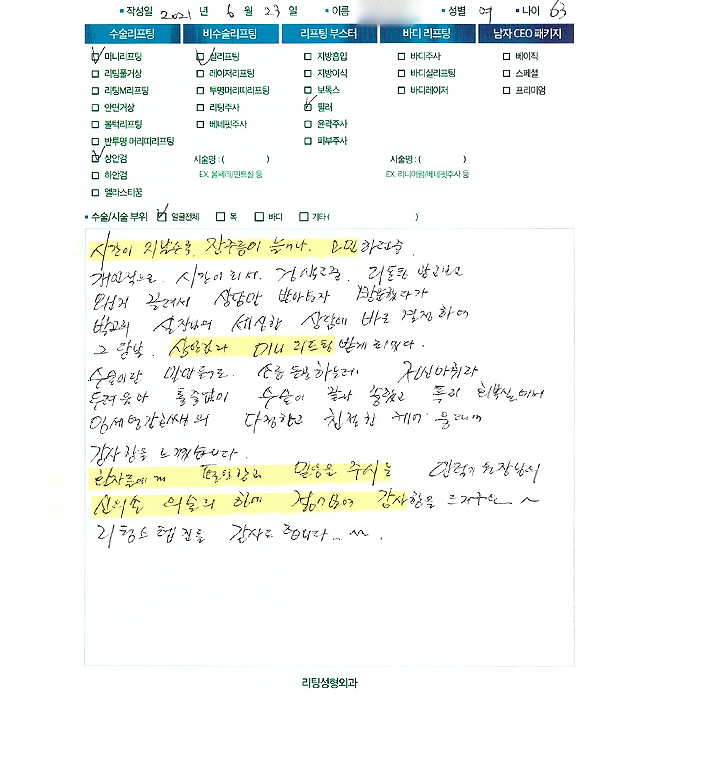 • 작성일 2021 년 6 월 23 일 • 이름 • 성별 여 • 나이 63
수술리프팅 비수술리프팅 리프팅 부스터 바디 리프팅 남자 CEO 패키지
미니리프팅 실리프팅 지방흡입 바디주사 베이직
리팅풀거상 레이저리프팅 지방이식 바디실리프팅 스페셜
리팅M리프팅 투명머리띠리프팅 보톡스 바디레이저 프리미엄
안면거상 리팅주사 필러
볼턱리프팅 베네핏주사 윤곽주사
반투명 머리띠리프팅 피부주사
상안검 시술명 : ( ) 시술명 : ( )
하안검 EX. 울쎄라/민트실 등 EX. 리니어펌/베네핏주사 등
엘라스티꿈
• 수술/시술 부위 얼굴전체 목 바디 기타 ( )
시간이 지날수록 잔주름이 늘거나 고민하던중
개인적으로 시간이 되서 검색도중 리팅 광고보고
상담만 받아보자 방문했다가
박고희 실장님의 세심한 상담에 바로 결정하여
그 당날 상안검과 미니리프팅 받게 되었다.
수술이란 말만들어도 소름돋을 전신마취라
수술이 끝나 특히 회복실에서
다정하고 친절한 케어
감사함을 느꼈습니다.
환자들에게 편안함과 믿음을 주시는 원장님의
신의손 의술의 힘에 감사함을 ~
감사드립니다 ~
리팅성형외과